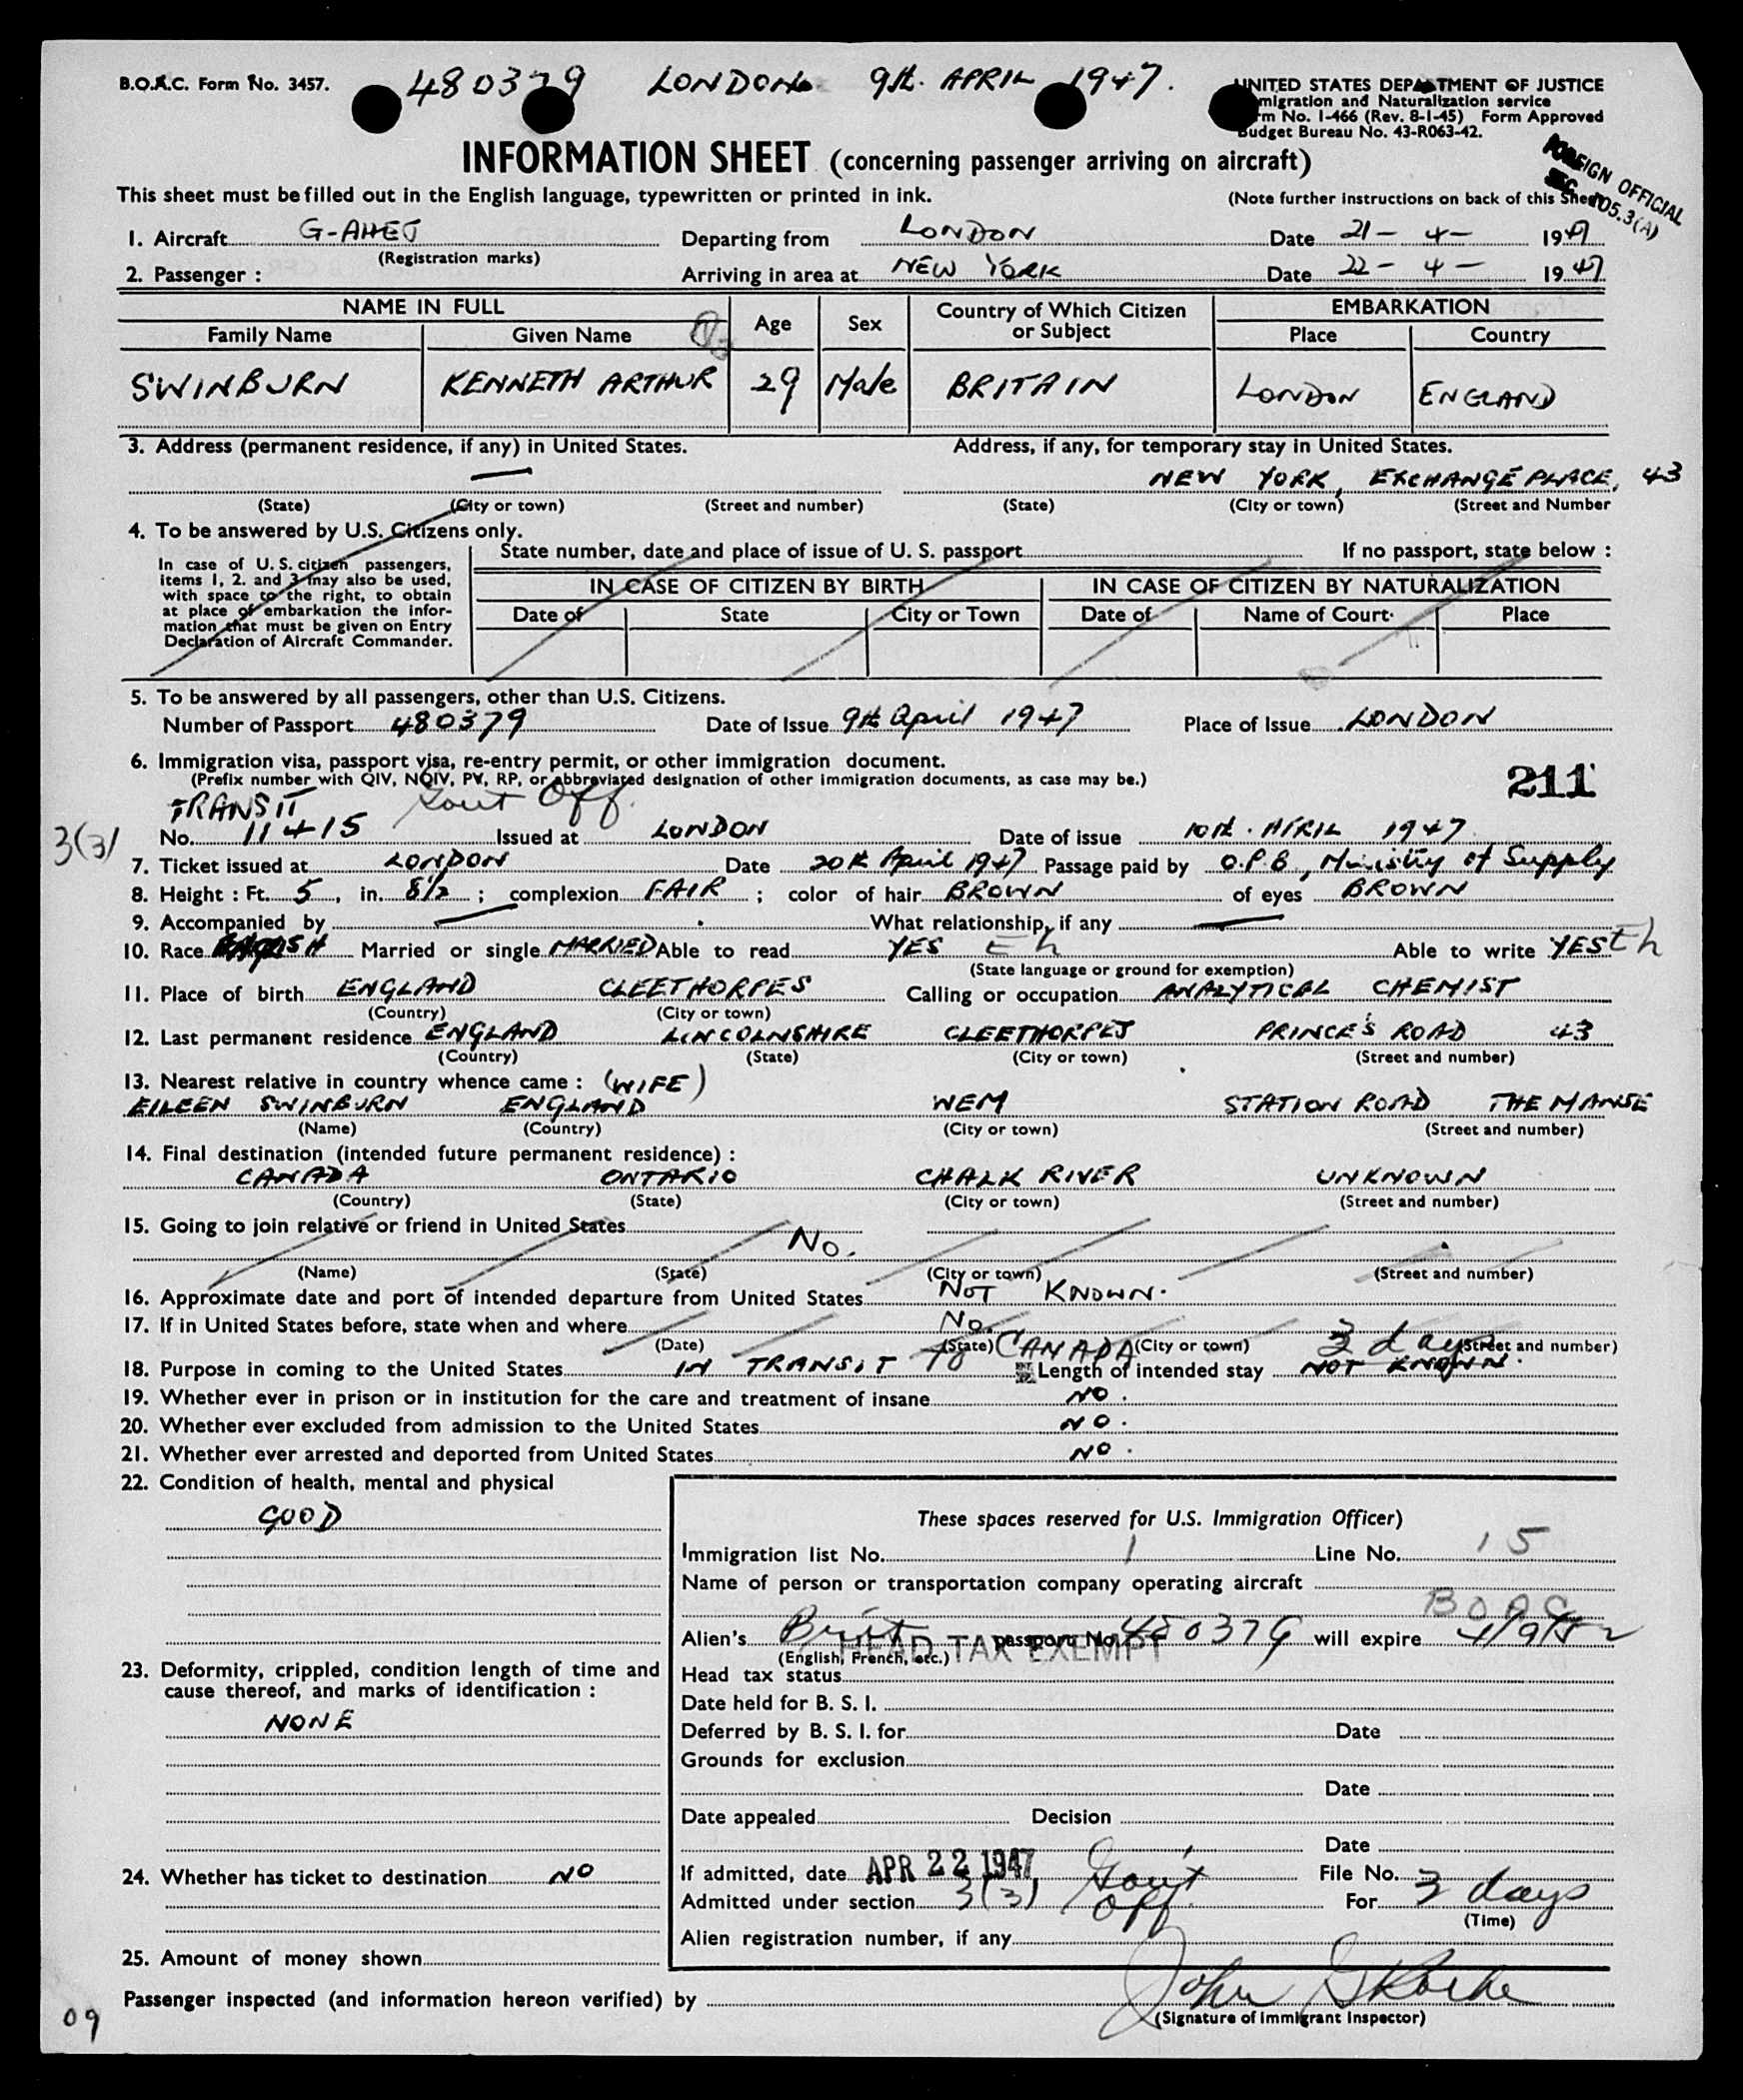 B.O.A.C. Form No. 3457. 480379 LONDON 9th. APRIL 1947. UNITED STATES DEPARTMENT OF JUSTICE
migration and Naturalization service
rm No. I-466 (Rev. 8-1-45) Form Approved
Budget Bureau No. 43-R063-42.
INFORMATION SHEET (concerning passenger arriving on aircraft)
FOREIGN OFFICIAL
SEC. 105.3(A)
This sheet must be filled out in the English language, typewritten or printed in ink. (Note further instructions on back of this Sheet)
1. Aircraft G-AHEJ Departing from LONDON Date 21- 4- 1947
(Registration marks)
2. Passenger : Arriving in area at NEW YORK Date 22- 4- 1947
NAME IN FULL Age Sex Country of Which Citizen or Subject EMBARKATION
Family Name Given Name Place Country
SWINBURN KENNETH ARTHUR 29 Male BRITAIN LONDON ENGLAND
3. Address (permanent residence, if any) in United States. Address, if any, for temporary stay in United States.
— NEW YORK, EXCHANGE PLACE, 43
(State) (City or town) (Street and number) (State) (City or town) (Street and Number
4. To be answered by U.S. Citizens only.
State number, date and place of issue of U. S. passport If no passport, state below :
In case of U. S. citizen passengers,
items 1, 2. and 3 may also be used,
with space to the right, to obtain
at place of embarkation the infor-
mation that must be given on Entry
Declaration of Aircraft Commander.
IN CASE OF CITIZEN BY BIRTH IN CASE OF CITIZEN BY NATURALIZATION
Date of State City or Town Date of Name of Court Place
5. To be answered by all passengers, other than U.S. Citizens.
Number of Passport 480379 Date of Issue 9th April 1947 Place of Issue LONDON
6. Immigration visa, passport visa, re-entry permit, or other immigration document.
(Prefix number with QIV, NQIV, PV, RP, or abbreviated designation of other immigration documents, as case may be.)
211
TRANSIT Govt Off.
3(3) No. 11415 Issued at LONDON Date of issue 10th. APRIL 1947
7. Ticket issued at LONDON Date 20th April 1947 Passage paid by O.P.B., Ministry of Supply
8. Height : Ft. 5, in. 8½ ; complexion FAIR ; color of hair BROWN of eyes BROWN
9. Accompanied by — What relationship, if any —
10. Race Married or single MARRIED Able to read YES Eh Able to write YES Eh
(State language or ground for exemption)
11. Place of birth ENGLAND CLEETHORPES Calling or occupation ANALYTICAL CHEMIST
(Country) (City or town)
12. Last permanent residence ENGLAND LINCOLNSHIRE CLEETHORPES PRINCE'S ROAD 43
(Country) (State) (City or town) (Street and number)
13. Nearest relative in country whence came : (WIFE)
EILEEN SWINBURN ENGLAND WEM STATION ROAD THE MANSE
(Name) (Country) (City or town) (Street and number)
14. Final destination (intended future permanent residence) :
CANADA ONTARIO CHALK RIVER UNKNOWN
(Country) (State) (City or town) (Street and number)
15. Going to join relative or friend in United States
No.
(Name) (State) (City or town) (Street and number)
16. Approximate date and port of intended departure from United States NOT KNOWN.
17. If in United States before, state when and where No.
(Date) (State) (City or town) (Street and number)
18. Purpose in coming to the United States IN TRANSIT TO CANADA Length of intended stay NOT KNOWN. 3 days
19. Whether ever in prison or in institution for the care and treatment of insane NO.
20. Whether ever excluded from admission to the United States NO.
21. Whether ever arrested and deported from United States NO.
22. Condition of health, mental and physical
GOOD
These spaces reserved for U.S. Immigration Officer)
Immigration list No. 1 Line No. 15
Name of person or transportation company operating aircraft
BOAC
Alien's Brit passport No. 480379 will expire 4/9/52
(English, French, etc.)
HEAD TAX EXEMPT
23. Deformity, crippled, condition length of time and
cause thereof, and marks of identification :
NONE
Head tax status
Date held for B. S. I.
Deferred by B. S. I. for Date
Grounds for exclusion
Date
Date appealed Decision
Date
24. Whether has ticket to destination NO
If admitted, date APR 22 1947 Govt File No.
Admitted under section 3(3) Off. For 3 days
(Time)
Alien registration number, if any
25. Amount of money shown
Passenger inspected (and information hereon verified) by John
(Signature of Immigrant Inspector)
09